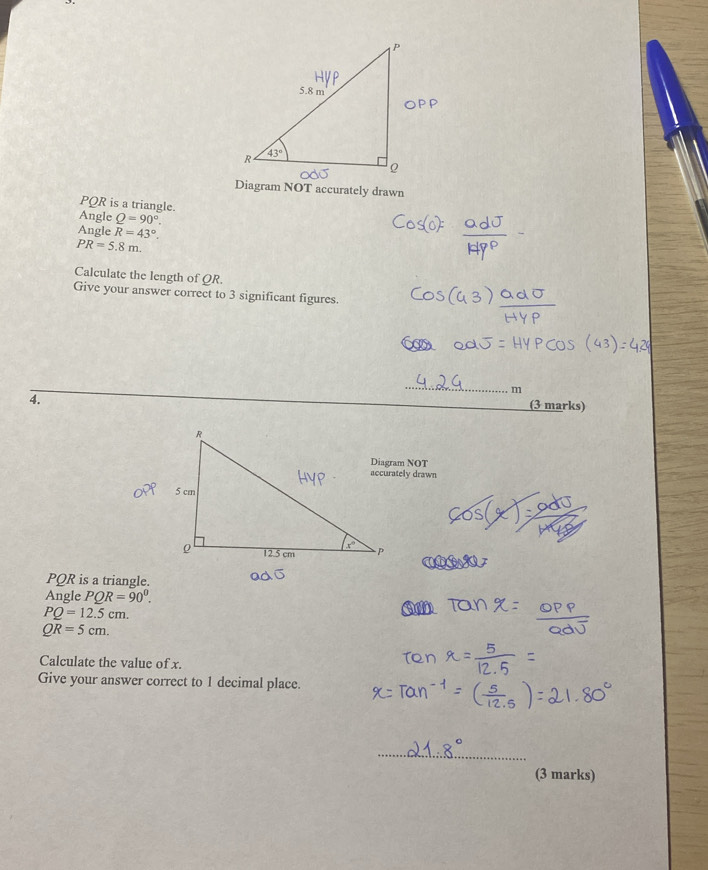 P
HYP
5.8 m
OPP
43°
R
Q
adJ
Diagram NOT accurately drawn
PQR is a triangle.
Angle Q = 90°.
Angle R = 43°.
PR = 5.8 m.
Cos(0)= adJ / HYP -
Calculate the length of QR.
Give your answer correct to 3 significant figures.
Cos(43) adJ / HYP
adJ = HYP COS (43) = 424
4.24 m
(3 marks)
4.
R
Diagram NOT
accurately drawn
HYP
OPP
5 cm
Cos(x) = adJ / HYP
Q
12.5 cm
x°
P
adJ
PQR is a triangle.
Angle PQR = 90⁰.
PQ = 12.5 cm.
QR = 5 cm.
Tan x = OPP / adJ
Calculate the value of x.
Give your answer correct to 1 decimal place.
Tan x = 5 / 12.5 =
x = Tan⁻¹ = (5 / 12.5) = 21.80°
21.8°
(3 marks)